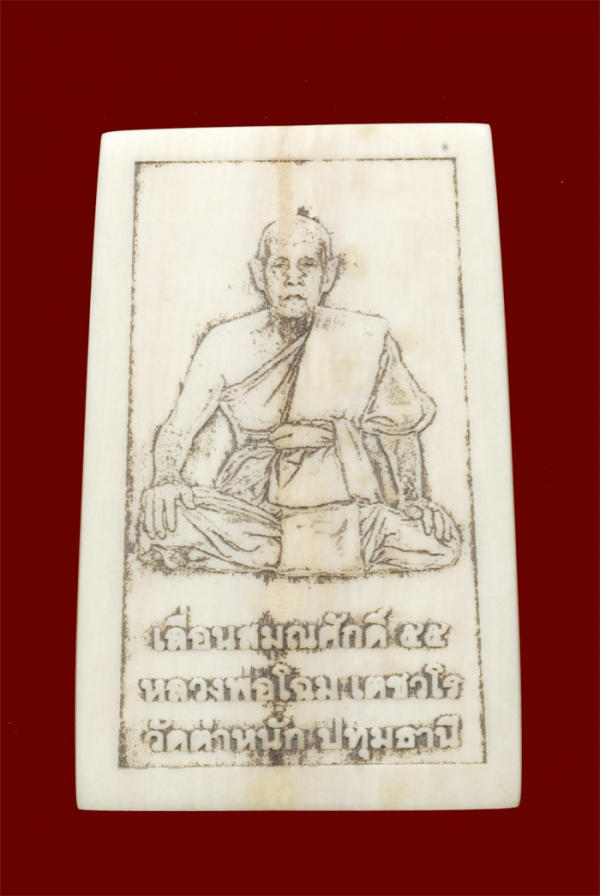 เลื่อนสมณศักดิ์ ๕๕
หลวงพ่อโฉม เตชวโร
วัดตำหนัก ปทุมธานี